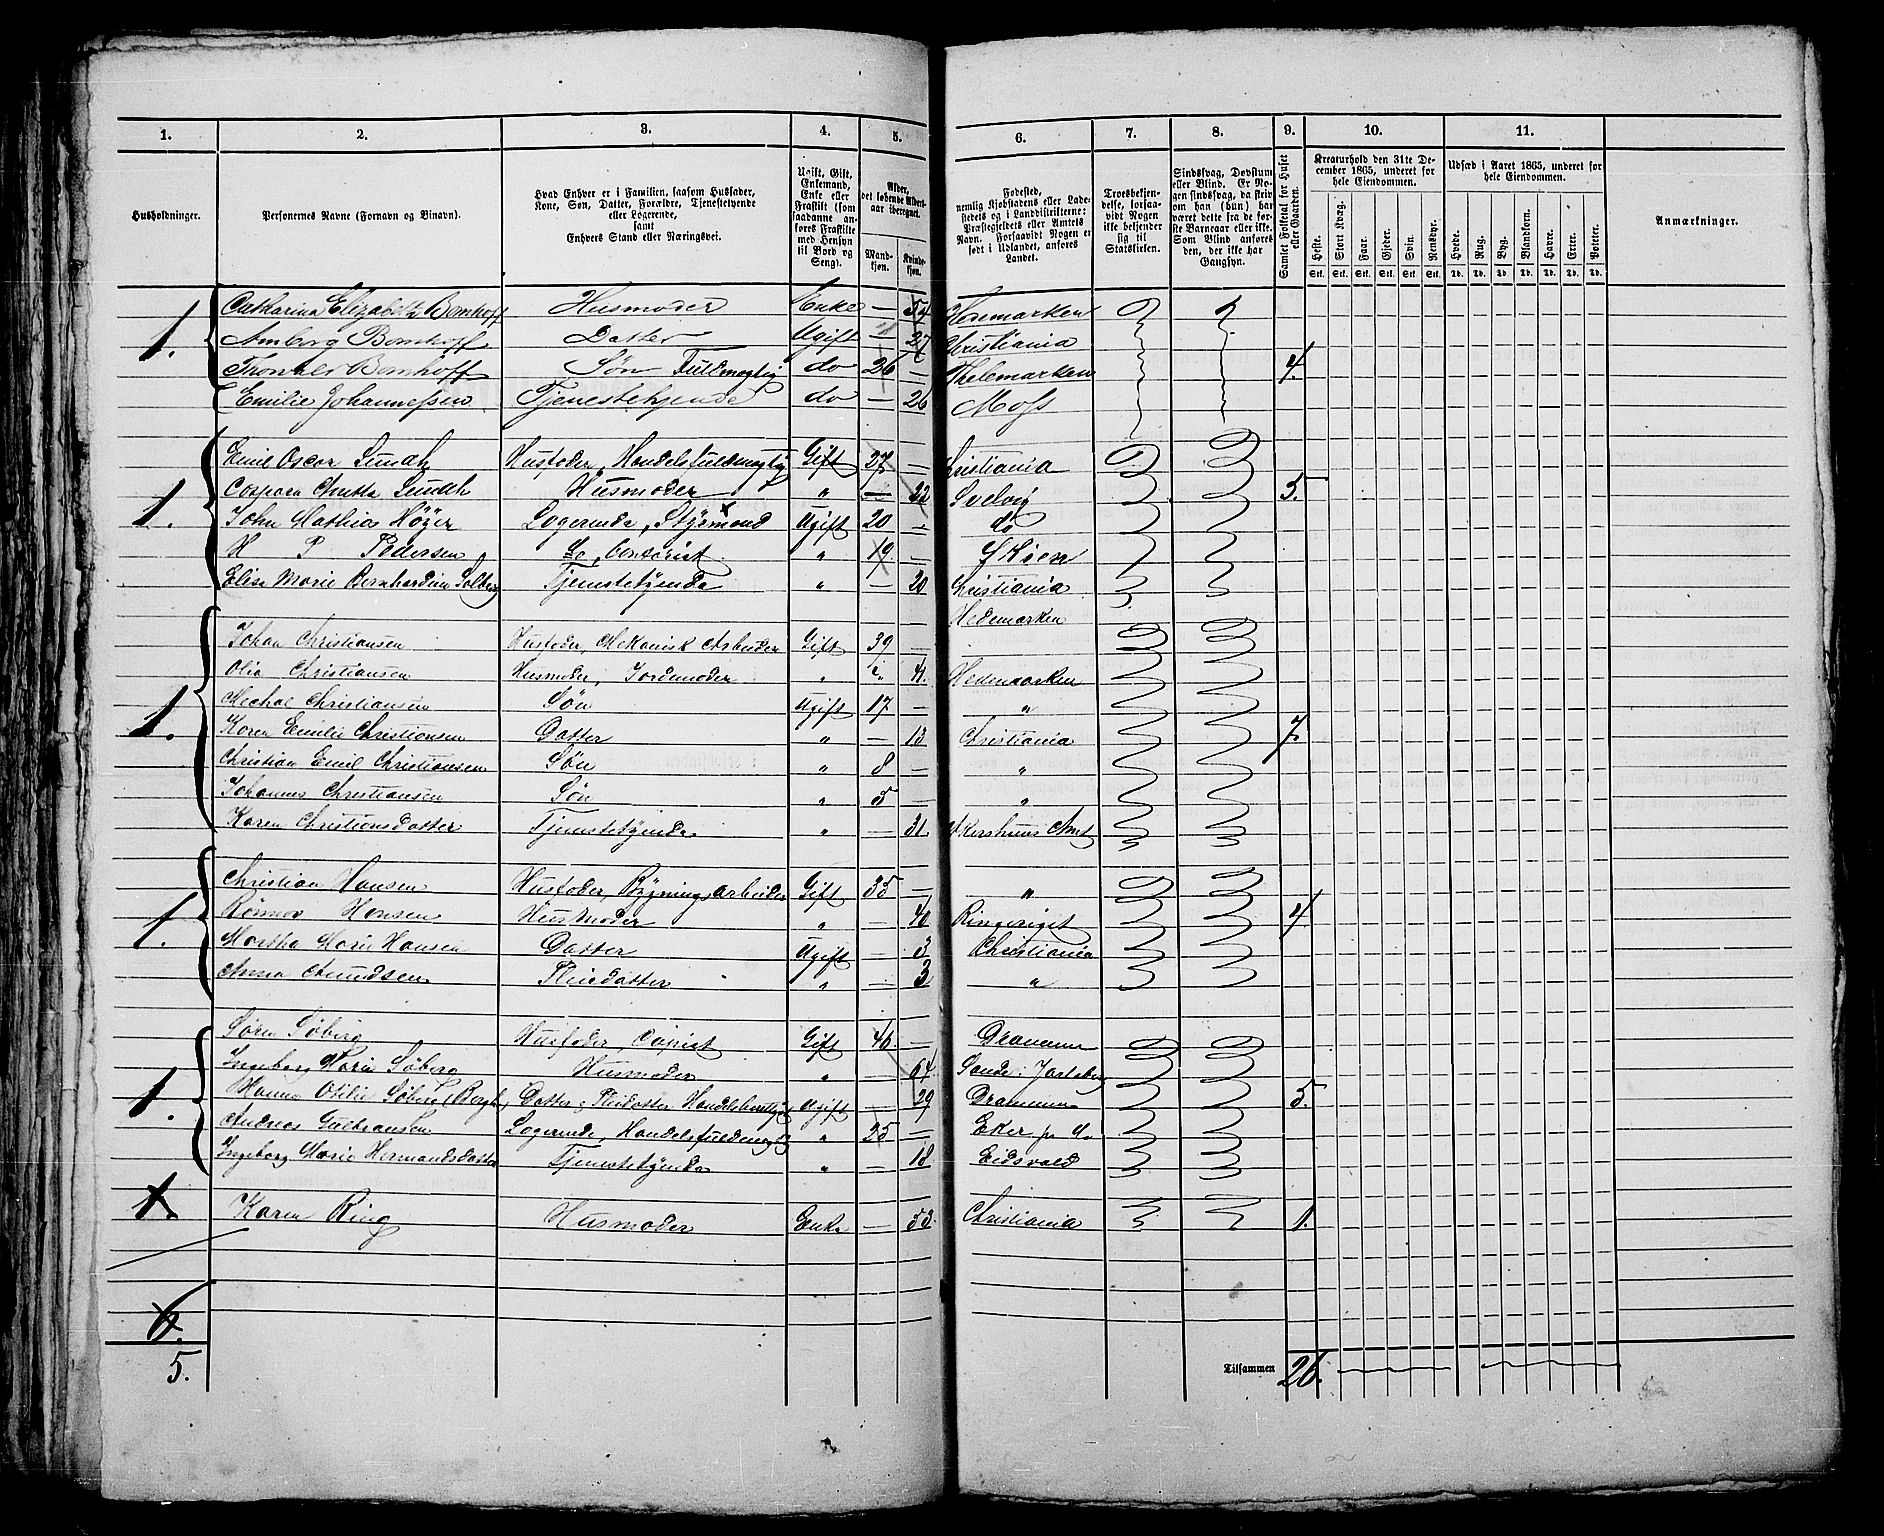 1. 2. 3. 4. 5. 6. 7. 8. 9. 10. 11.
Husholdninger.
Personernes Navne (Fornavn og Binavn).
Hvad Enhver er i Familien, saasom Husfader,
Kone, Søn, Datter, Forældre, Tjenestetyende
eller Logerende,
samt
Enhvers Stand eller Næringsvei.
Ugift, Gift,
Enkemand,
Enke eller
Fraskilt (som
saadanne an-
føres Fraskilte
med Hensyn
til Bord og
Seng).
Alder,
det løbende Alders-
aar iberegnet.
Mand-
kjøn.
Kvinde-
kjøn.
Fødested,
nemlig Kjøbstadens eller Lade-
stedets og i Landdistrikterne:
Præstegjeldets eller Amtets
Navn. Forsaavidt Nogen er
født i Udlandet, anføres
Landet.
Troesbekjen-
delse, forsaa-
vidt Nogen
ikke bekjender
sig til
Statskirken.
Sindssvag, Døvstum
eller Blind. Er No-
gen sindssvag, da skriv
om han (hun) har
været dette fra de før-
ste Barneaar eller ikke.
Som Blind anføres
den, der ikke har
Gangsyn.
Samlet Folketal for Huset
eller Gaarden.
Kreaturhold den 31te De-
cember 1865, underet for
hele Eiendommen.
Heste. Stort Kvæg. Faar. Gjeder. Svin. Rensdyr.
Stk. Stk. Stk. Stk. Stk. Stk.
Udsæd i Aaret 1865, underet for
hele Eiendommen.
Hvede. Rug. Byg. Blandkorn. Havre. Erter. Poteter.
Td. Td. Td. Td. Td. Td. Td.
Anmærkninger.
1. Catharina Elizabeth Bomhoff Husmoder Enke — 54
Bomhoff Datter Ugift — 27 Christiania
Bomhoff Søn Fuldmægtig do 26 — Thelemarken 4.
Emilie Johannessen Tjenestetyende do — 26 Moss
Emil Oscar Lundh Husfader, Handelsfuldmægtig Gift 27 — Christiania
Lundh Husmoder " — 22 Svelvig 5.
1. John Mathias Höyer Logerende, Styrmand Ugift 20 — do
H P Pedersen do, Contorist " 19 — Skien
Elise Marie Bernhardine Solberg Tjenestetyende " — 20 Christiania
Hedemarken
Johan Christiansen Husfader, Mekanisk Arbeider Gift 39 —
Olia Christiansen Husmoder, Jordemoder " " 41. Hedemarken
1. Michal Christiansen Søn Ugift 17 — "
Karen Emilie Christiansen Datter " — 13 Christiania 7.
Christian Emil Christiansen Søn " 8 — "
Johannes Christiansen Søn " 5 — "
Karen Christiansdatter Tjenestetyende " — 31. Akershuus Amt
Christian Hansen Husfader, Bygningsarbeider Gift 35 — "
1. Hansen Husmoder " — 40 Ringeriget 4.
Martha Marie Hansen Datter Ugift — 3 Christiania
Anna Amundsen Pleiedatter " — 3 "
Søren Söberg Husfader, Copist Gift 46. — Drammen
Ingeborg Marie Söberg Husmoder " — 64. Sande i Jarlsberg
1. Hanna Otilie Söberg Datter, Pleiedatter Ugift — 29 Drammen 5.
Andreas Gulbransen Logerende, Handelsfuldmægtig " 25 — Eker pr do
Ingeborg Marie Hermandsdatter Tjenestetyende " — 18 Eidsvold
1. Karen Ring Husmoder Enke — 53. Christiania 1.
6.
5.
Tilsammen 26.